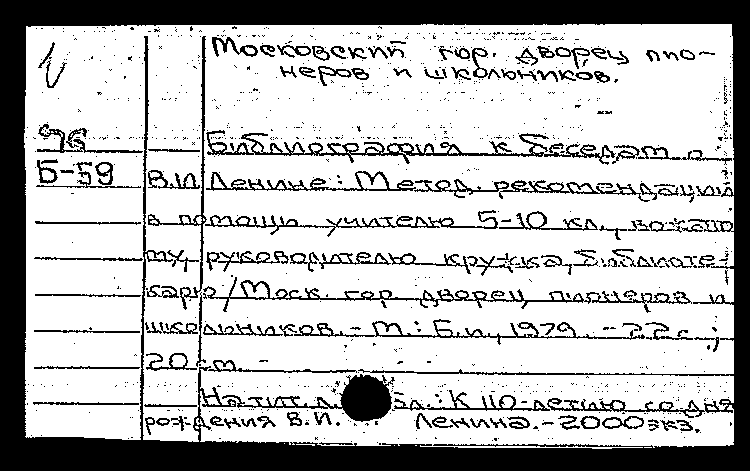 Московский гор. дворец пио-
неров и школьников.
96
Библиография к беседам о
Б-59
В.И. Ленине: Метод. рекомендации
в помощь учителю 5-10 кл., вожато
му, руководителю кружка, библиоте-
карю/Моск. гор. дворец пионеров и
школьников. - М.: Б.и., 1979. - 22 с.;
20 см. -
На тит. л. : К 110-летию со дня
рождения В.И. Ленина. - 2000 экз.